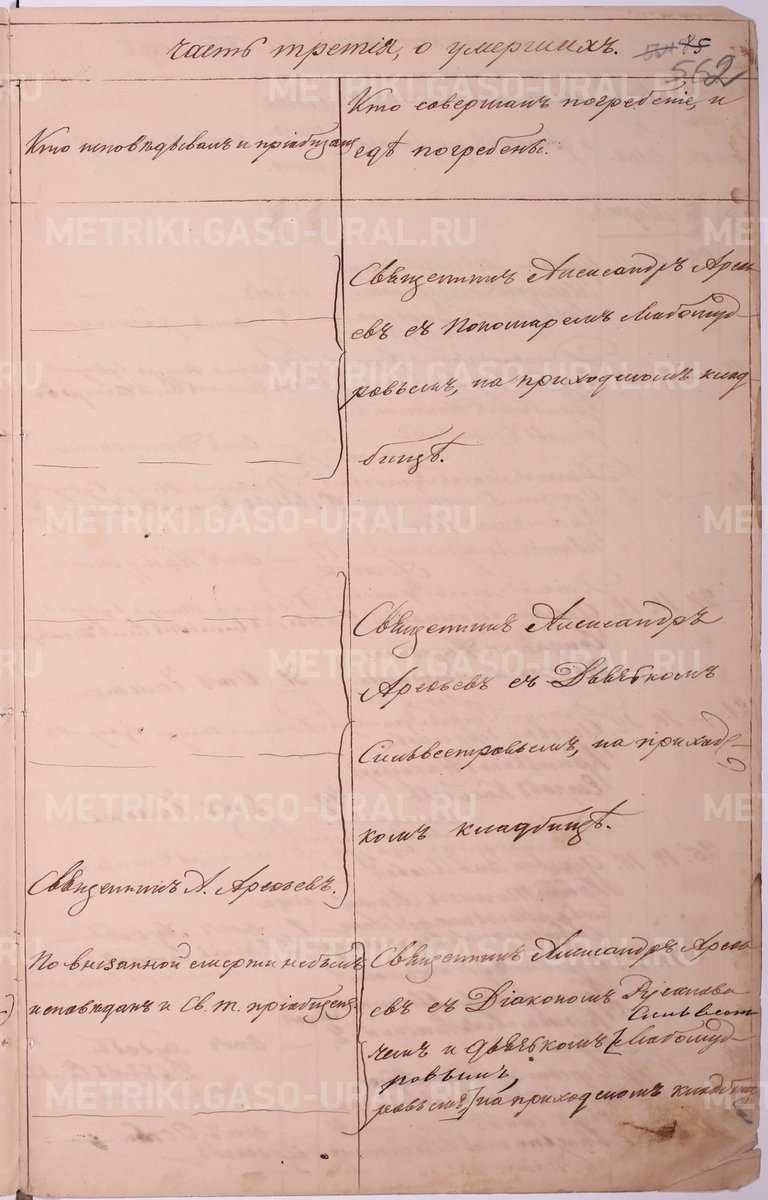 часть третія, о умершихъ.
85
562
Кто исповѣдывалъ и пріобщалъ
Кто совершалъ погребеніе, и
гдѣ погребены.
Священникъ Александръ Арефь
евъ съ Пономаремъ Любомуд-
ровымъ, на приходскомъ клад
бищѣ.
Священникъ Александръ
Арефьевъ съ Дьячкомъ
Сильвестровымъ, на приход
комъ кладбищѣ.
Священникъ А. Арефьевъ.
По внезапной смерти небылъ
исповѣданъ и Св. т. пріобщенъ.
Священникъ Александръ Арефь
евъ съ Діакономъ
Сильвест
чемъ и дьячкомъ [Любомуд
ровымъ
ровымъ,] на приходскомъ кладбищ
METRIKI.GASO-URAL.RU